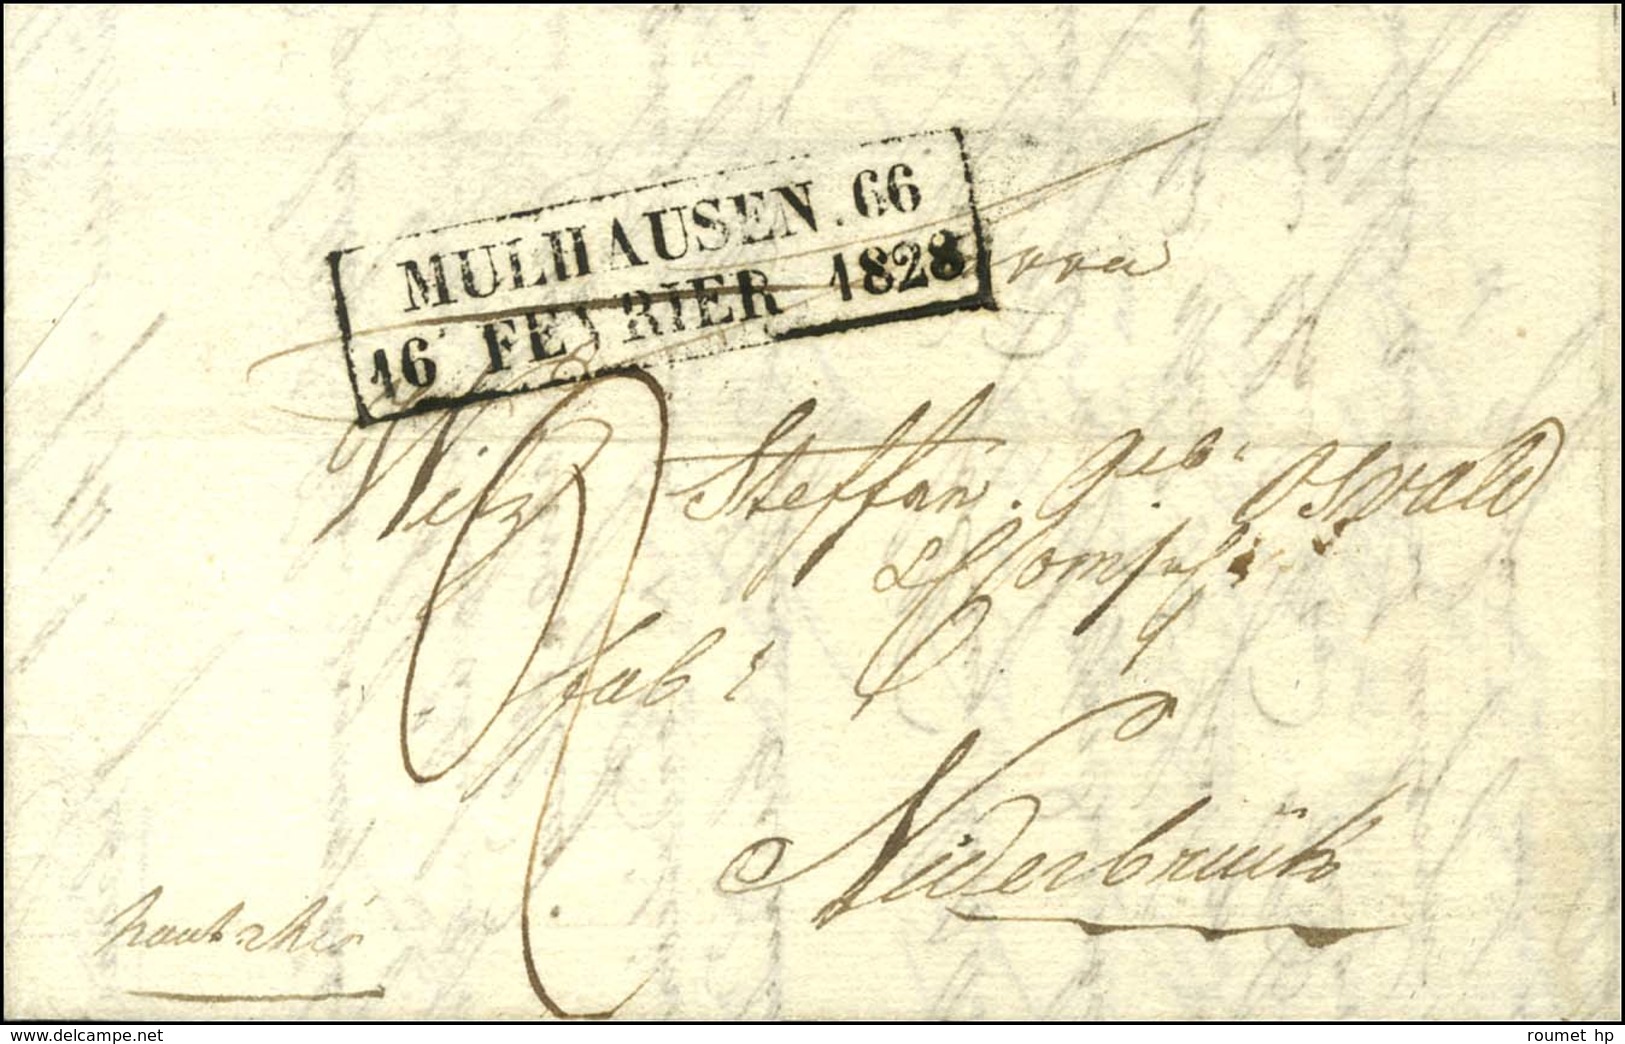 MULHAUSEN. 66
16 FEVRIER 1828
Witz Steffan. Geb. Oswald
& Comp
fab
Niderbrück
haut rhin
delcampe.net
roumet hp